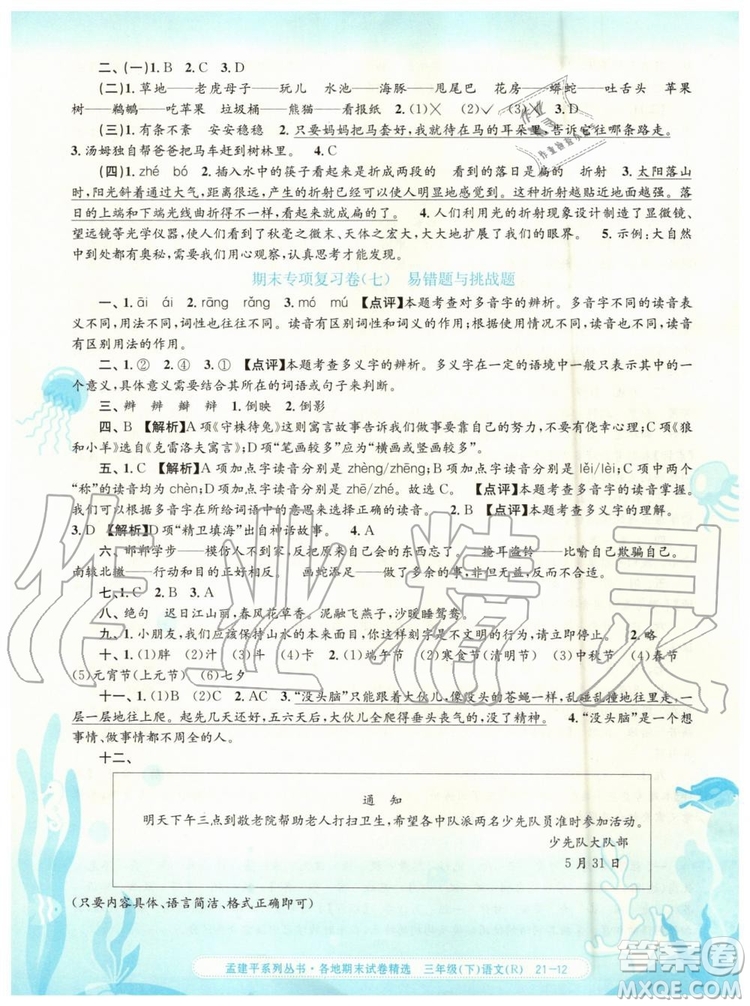 二、(一)1. B　2. C　3. D
(二)1. 草地——老虎母子——玩儿　水池——海豚——甩尾巴　花房——蟒蛇——吐舌头　苹果
树——鹦鹉——吃苹果　垃圾桶——熊猫——看报纸　2. (1)×　(2)×　(3)√　3. D
(三)1. 有条不紊　安安稳稳　2. 只要妈妈把马套好,我就待在马的耳朵里,告诉它往哪条路走。
3. 汤姆独自帮爸爸把马车赶到树林里。　4. C
(四)1. zhé　bó　2. 插入水中的筷子看起来是折的　落日看起来是扁的　折射　3. 太阳落山
时,阳光斜着通过大气,产生的折射很强烈,产生的折射越贴近地面越强。落
日的上端和下端光线曲折得不一样,看起来就成扁的了。　4. 人们利用光的折射现象设计制造了显微镜、
望远镜等光学仪器,使人们看到了秋毫之微末、天体之宏大,大大拓展了视野。　5. 示例:大自然
中到处都有奥秘,只要用心观察,认真思考,才能发现。
期末专项复习卷(七)　易错题与挑战题
一、1. āi　ái　2. rāng　rǎng　3. mó　mú　【点评】本题考查对多音字的辨析。多音字在读音表
义不同,用法不同,词性也往往不同。读音有区别词性和词义的作用。根据使用情况不同,读音
有区别用法的作用。
二、1. ②　2. ④　3. ④　4. ①　【点评】本题考查多义字的辨析。多义字在一定的语境中只有一
个意义,具体是哪个意义,要结合所在的词语或句子来判断。
三、辫　辨　瓣　辩　1. 倒映　2. 倒影
四、B　【解析】A项《守株待兔》这则寓言故事告诉我们要靠自己的努力,不要有侥幸心理;C项《狼
和小羊》选自《克雷洛夫寓言》;D项“笔画有横折”应为“横画或竖画较多”。
五、1. C　【解析】A项加点字读音分别是 zhèng/zhēng;B项加点字读音分别是 lěi/lèi;C项两个
“称”的读音均为 chèn;D项加点字读音分别是 zhā/zhé。故选 C。　【点评】本题考查多音字的读音掌握。
我们要先根据所给词语中的意思来选择读音。　2. B　【点评】本题考查多音字的理解。
3. D　【解析】D项“精卫填海”出自神话故事。　4. A
六、邯郸学步——模仿人不到家,反把自己原来会的东西忘了。　掩耳盗铃——愚蠢地自己欺骗自己。
南辕北辙——行动和目的正好相反。　画蛇添足——做多余的事,反而不恰当。
七、1. C　2. B　3. A
八、绝句　迟日江山丽,春风花草香。泥融飞燕子,沙暖睡鸳鸯。
九、1. 小朋友,我们应该保持山水的本来面目,你这样刻字是不文明的行为。　2. 略
十、1. (1)胖　(2)汁　(3)斗　(4)卡　2. (1)端午节　(2)寒食节(清明节)　(3)中秋节　(4)春节
(5)元宵节(上元节)　(6)七夕
十一、1. (1)×　(2)√　2. AC　3. “没头脑”只能跟着大伙儿,像没头的苍蝇一样,乱碰乱撞地在楼上
一层一层地往上爬。起先几天还好,五六天后,大伙儿就都垂头丧气的,没了精神。　4. “没头脑”是一个想
事情、做事情都不周全的人。
十二、
通　知
明天下午三点到敬老院帮助老人打扫卫生,希望各中队派两名少先队员准时参加活动。
少先队大队部
5月31日
(只要内容具体、语言简洁、格式正确即可)
孟建平系列丛书·各地期末试卷精选　三年级(下)语文(R)　21—12
作业精灵
答案圈
MXQE.COM